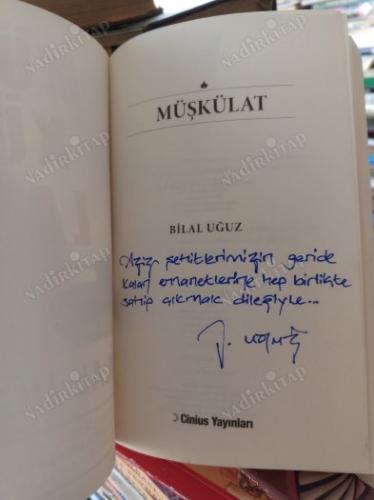 MÜŞKÜLAT
BİLAL UĞUZ
Aziz şehitlerimizin geride
kalan emanetlerine hep birlikte
sahip çıkmak dileğiyle...
B. UĞUZ
Cinius Yayınları
NADİRKİTAP